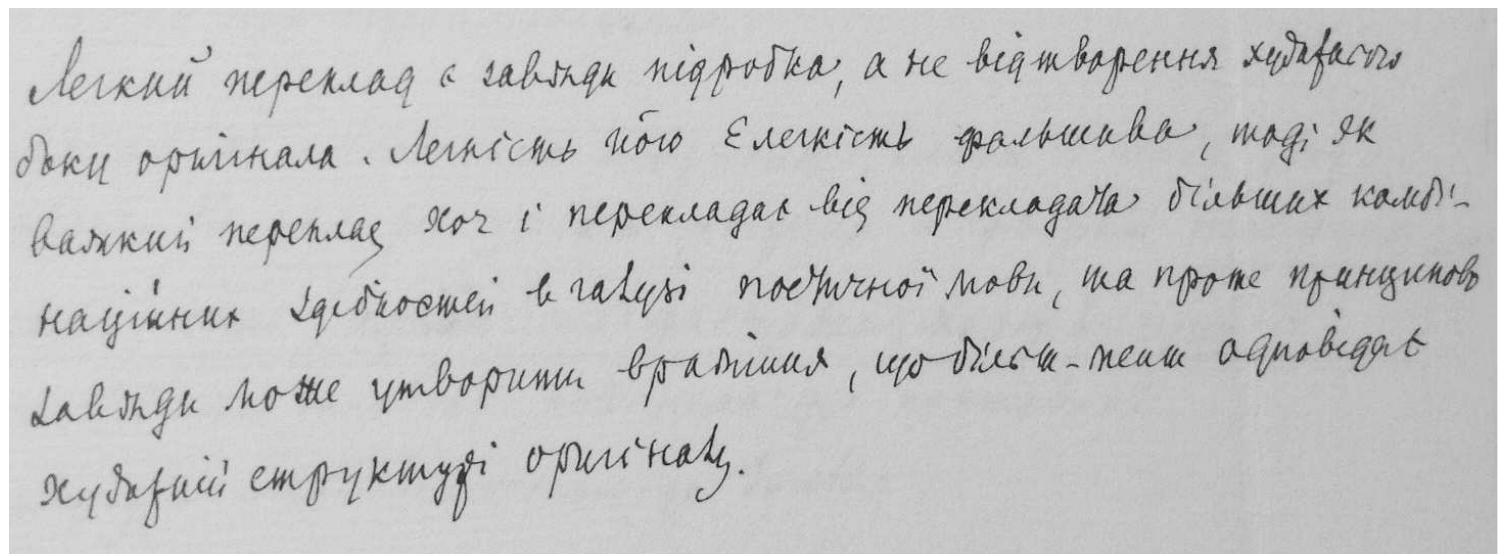 Легкий переклад є завжди підробка, а не відтворення художнього
боку оригінала. Легкість його є легкість фальшива, тоді як
важкий переклад хоч і перекладає від перекладача більших комбі-
наційних здібностей в галузі поетичної мови, та проте принципово
завжди може утворити враження, що більш-менш одповідає
художній структурі оригіналу.